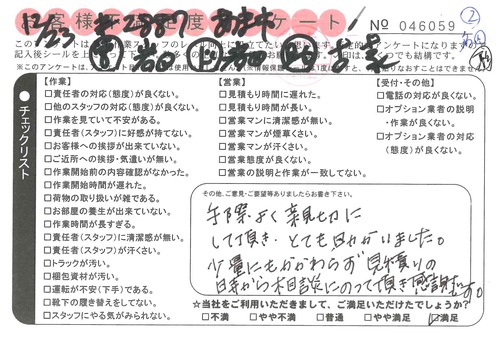 お客様満足度アンケート!
No 046059
②
12/23
チェックリスト
【作業】
□責任者の対応(態度)が良くない。
□他のスタッフの対応(態度)が良くない。
□作業を見ていて不安がある。
□責任者(スタッフ)に好感が持てない。
□お客様への挨拶が出来ていない。
□ご近所への挨拶・気遣いが無い。
□作業開始前の内容確認がなかった。
□作業開始時間が遅れた。
□荷物の取り扱いが雑である。
□お部屋の養生が出来ていない。
□作業時間が長すぎる。
□責任者(スタッフ)に清潔感が無い。
□責任者(スタッフ)が汗くさい。
□トラックが汚い。
□梱包資材が汚い。
□運転が不安(下手)である。
□靴下の履き替えをしてない。
□スタッフにやる気がみられない。
【営業】
□見積もりに遅れた。
□見積もり時間が長い。
□営業マンに清潔感が無い。
□営業マンが煙草くさい。
□営業マンが汗くさい。
□営業態度が良くない。
□営業の説明と作業が一致してない。
【受付・その他】
□電話の対応が良くない。
□オプション業者の説明
・作業が良くない。
□オプション業者の対応
(態度)が良くない。
その他、ご意見・ご要望等ありましたらお書き下さい。
手際よく親切に
して頂き、とても助かりました。
少量にもかかわらず見積りの
時から相談にのって頂き感謝です。
☆当社をご利用いただきまして、ご満足いただけたでしょうか?
□不満 □やや不満 □普通 □やや満足 ☑満足